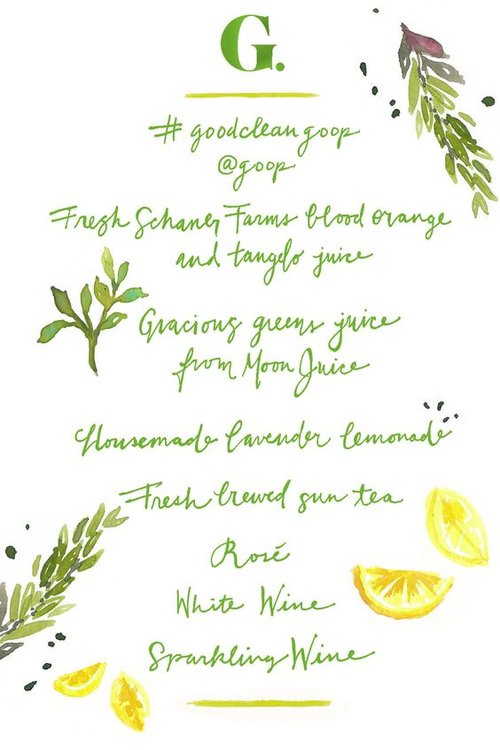 G.
# goodcleangoop
@goop
Fresh Schaner Farms blood orange
and tangelo juice
Gracious greens juice
from Moon Juice
Housemade lavender lemonade
Fresh brewed sun tea
Rosé
White Wine
Sparkling Wine